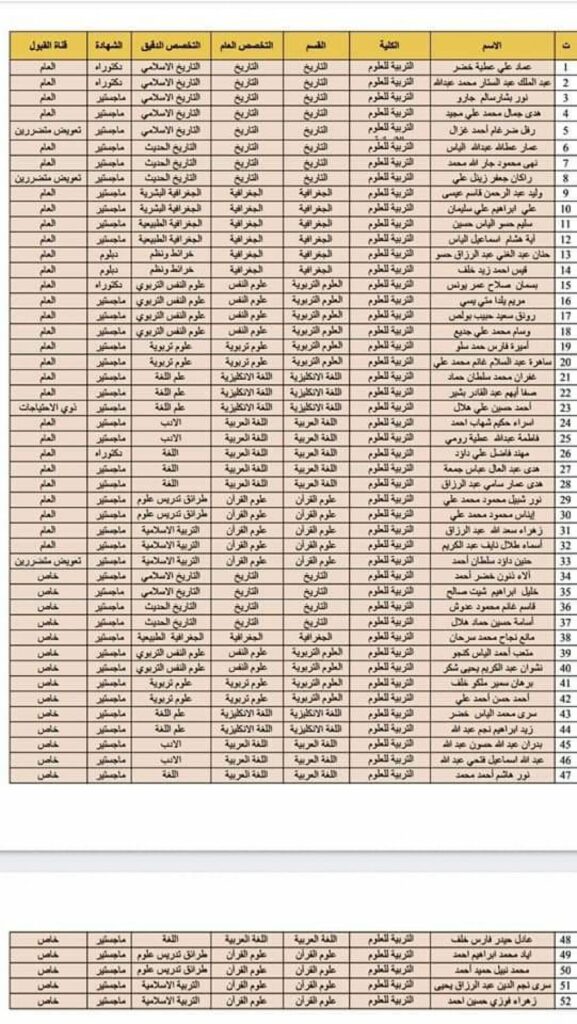 ت الاسم الكلية القسم التخصص العام التخصص الدقيق الشهادة قناة القبول
1 عماد علي عطية خضر التربية للعلوم التاريخ التاريخ التاريخ الاسلامي دكتوراه العام
2 عبد الملك عبد الستار محمد عبدالله التربية للعلوم التاريخ التاريخ التاريخ الاسلامي دكتوراه العام
3 نور بشار سالم جارو التربية للعلوم التاريخ التاريخ التاريخ الاسلامي ماجستير العام
4 هدى جمال محمد علي مجيد التربية للعلوم التاريخ التاريخ التاريخ الاسلامي ماجستير العام
5 رفل ضرغام أحمد غزال التربية للعلوم التاريخ التاريخ التاريخ الاسلامي ماجستير تعويض متضررين
6 عمار عطالله عبدالله الياس التربية للعلوم التاريخ التاريخ التاريخ الحديث ماجستير العام
7 نهى محمود جار الله محمد التربية للعلوم التاريخ التاريخ التاريخ الحديث ماجستير العام
8 راكان جعفر زينل علي التربية للعلوم التاريخ التاريخ التاريخ الحديث ماجستير تعويض متضررين
9 وليد عبد الرحمن قاسم عيسى التربية للعلوم الجغرافية الجغرافية الجغرافية البشرية ماجستير العام
10 علي ابراهيم علي سليمان التربية للعلوم الجغرافية الجغرافية الجغرافية البشرية ماجستير العام
11 سليم حسو الياس حسين التربية للعلوم الجغرافية الجغرافية الجغرافية الطبيعية ماجستير العام
12 آية هشام اسماعيل الياس التربية للعلوم الجغرافية الجغرافية الجغرافية الطبيعية ماجستير العام
13 حنان عبد الغني عبد الرزاق حسو التربية للعلوم الجغرافية الجغرافية خرائط ونظم دبلوم العام
14 قيس احمد زيد خلف التربية للعلوم الجغرافية الجغرافية خرائط ونظم دبلوم العام
15 بسمان صلاح عمر يونس التربية للعلوم العلوم التربوية علوم النفس علوم النفس التربوي دكتوراه العام
16 مريم يلدا متي يسي التربية للعلوم العلوم التربوية علوم النفس علوم النفس التربوي ماجستير العام
17 رونق سعيد حبيب بولص التربية للعلوم العلوم التربوية علوم النفس علوم النفس التربوي ماجستير العام
18 وسام محمد علي جديع التربية للعلوم العلوم التربوية علوم النفس علوم النفس التربوي ماجستير العام
19 أميرة فارس حمد سلو التربية للعلوم العلوم التربوية علوم تربوية علوم تربوية ماجستير العام
20 ساهرة عبد السلام غانم محمد علي التربية للعلوم العلوم التربوية علوم تربوية علوم تربوية ماجستير العام
21 غفران محمد سلطان حماد التربية للعلوم اللغة الانكليزية اللغة الانكليزية علم اللغة ماجستير العام
22 صفا أيهم عبد القادر بشير التربية للعلوم اللغة الانكليزية اللغة الانكليزية علم اللغة ماجستير العام
23 أحمد حسين علي هلال التربية للعلوم اللغة الانكليزية اللغة الانكليزية علم اللغة ماجستير ذوي الاحتياجات
24 اسراء حكيم شهاب احمد التربية للعلوم اللغة العربية اللغة العربية الادب ماجستير العام
25 فاطمة عبدالله عطية رومي التربية للعلوم اللغة العربية اللغة العربية الادب ماجستير العام
26 مهند فاضل علي داؤد التربية للعلوم اللغة العربية اللغة العربية اللغة دكتوراه العام
27 هدى عبد العال عباس جمعة التربية للعلوم اللغة العربية اللغة العربية اللغة ماجستير العام
28 هدى عمار سامي عبد الرزاق التربية للعلوم اللغة العربية اللغة العربية اللغة ماجستير العام
29 نور شبيل محمود محمد علي التربية للعلوم علوم القرآن علوم القرآن طرائق تدريس علوم ماجستير العام
30 إيناس محمود محمد علي التربية للعلوم علوم القرآن علوم القرآن طرائق تدريس علوم ماجستير العام
31 زهراء سعد الله عبد الرزاق التربية للعلوم علوم القرآن علوم القرآن التربية الاسلامية ماجستير العام
32 أسماء طلال نايف عبد الكريم التربية للعلوم علوم القرآن علوم القرآن التربية الاسلامية ماجستير العام
33 حنين داؤد سلطان أحمد التربية للعلوم علوم القرآن علوم القرآن التربية الاسلامية ماجستير تعويض متضررين
34 آلاء ذنون خضر أحمد التربية للعلوم التاريخ التاريخ التاريخ الاسلامي ماجستير خاص
35 خليل ابراهيم شيت صالح التربية للعلوم التاريخ التاريخ التاريخ الاسلامي ماجستير خاص
36 قاسم غانم محمود عدوش التربية للعلوم التاريخ التاريخ التاريخ الحديث ماجستير خاص
37 أسامة حسين حماد هلال التربية للعلوم التاريخ التاريخ التاريخ الحديث ماجستير خاص
38 مانع نجاح محمد سرحان التربية للعلوم الجغرافية الجغرافية الجغرافية الطبيعية ماجستير خاص
39 متعب أحمد الياس كنجو التربية للعلوم العلوم التربوية علوم النفس علوم النفس التربوي ماجستير خاص
40 نشوان عبد الكريم يحيى شكر التربية للعلوم العلوم التربوية علوم النفس علوم النفس التربوي ماجستير خاص
41 برهان سمير ملكو خلف التربية للعلوم العلوم التربوية علوم تربوية علوم تربوية ماجستير خاص
42 أحمد حسن أحمد علي التربية للعلوم العلوم التربوية علوم تربوية علوم تربوية ماجستير خاص
43 سرى محمد الياس خضر التربية للعلوم اللغة الانكليزية اللغة الانكليزية علم اللغة ماجستير خاص
44 زيد ابراهيم نجم عبد الله التربية للعلوم اللغة الانكليزية اللغة الانكليزية علم اللغة ماجستير خاص
45 بدران عبد الله حسون عبد الله التربية للعلوم اللغة العربية اللغة العربية الادب ماجستير خاص
46 عبد الله اسماعيل فتحي عبد الله التربية للعلوم اللغة العربية اللغة العربية الادب ماجستير خاص
47 نور هاشم أحمد محمد التربية للعلوم اللغة العربية اللغة العربية اللغة ماجستير خاص
48 عادل حيدر فارس خلف التربية للعلوم اللغة العربية اللغة العربية اللغة ماجستير خاص
49 اياد محمد ابراهيم احمد التربية للعلوم علوم القرآن علوم القرآن طرائق تدريس علوم ماجستير خاص
50 محمد نبيل حميد أحمد التربية للعلوم علوم القرآن علوم القرآن طرائق تدريس علوم ماجستير خاص
51 سرى نجم الدين عبد الرزاق يحيى التربية للعلوم علوم القرآن علوم القرآن التربية الاسلامية ماجستير خاص
52 زهراء فوزي حسين احمد التربية للعلوم علوم القرآن علوم القرآن التربية الاسلامية ماجستير خاص